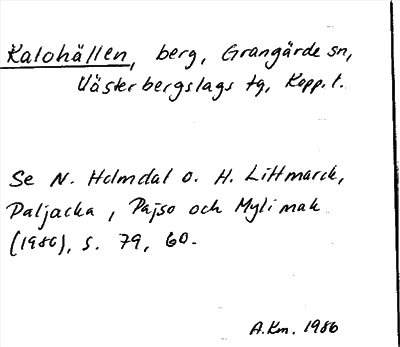 Kalohällen, berg, Grangärde sn,
Västerbergslags tg, Kopp. l.
Se N. Holmdal o. H. Littmarck,
Paljacka, Pajso och Mylimak
(1986), s. 79, 60.
A.Km. 1986